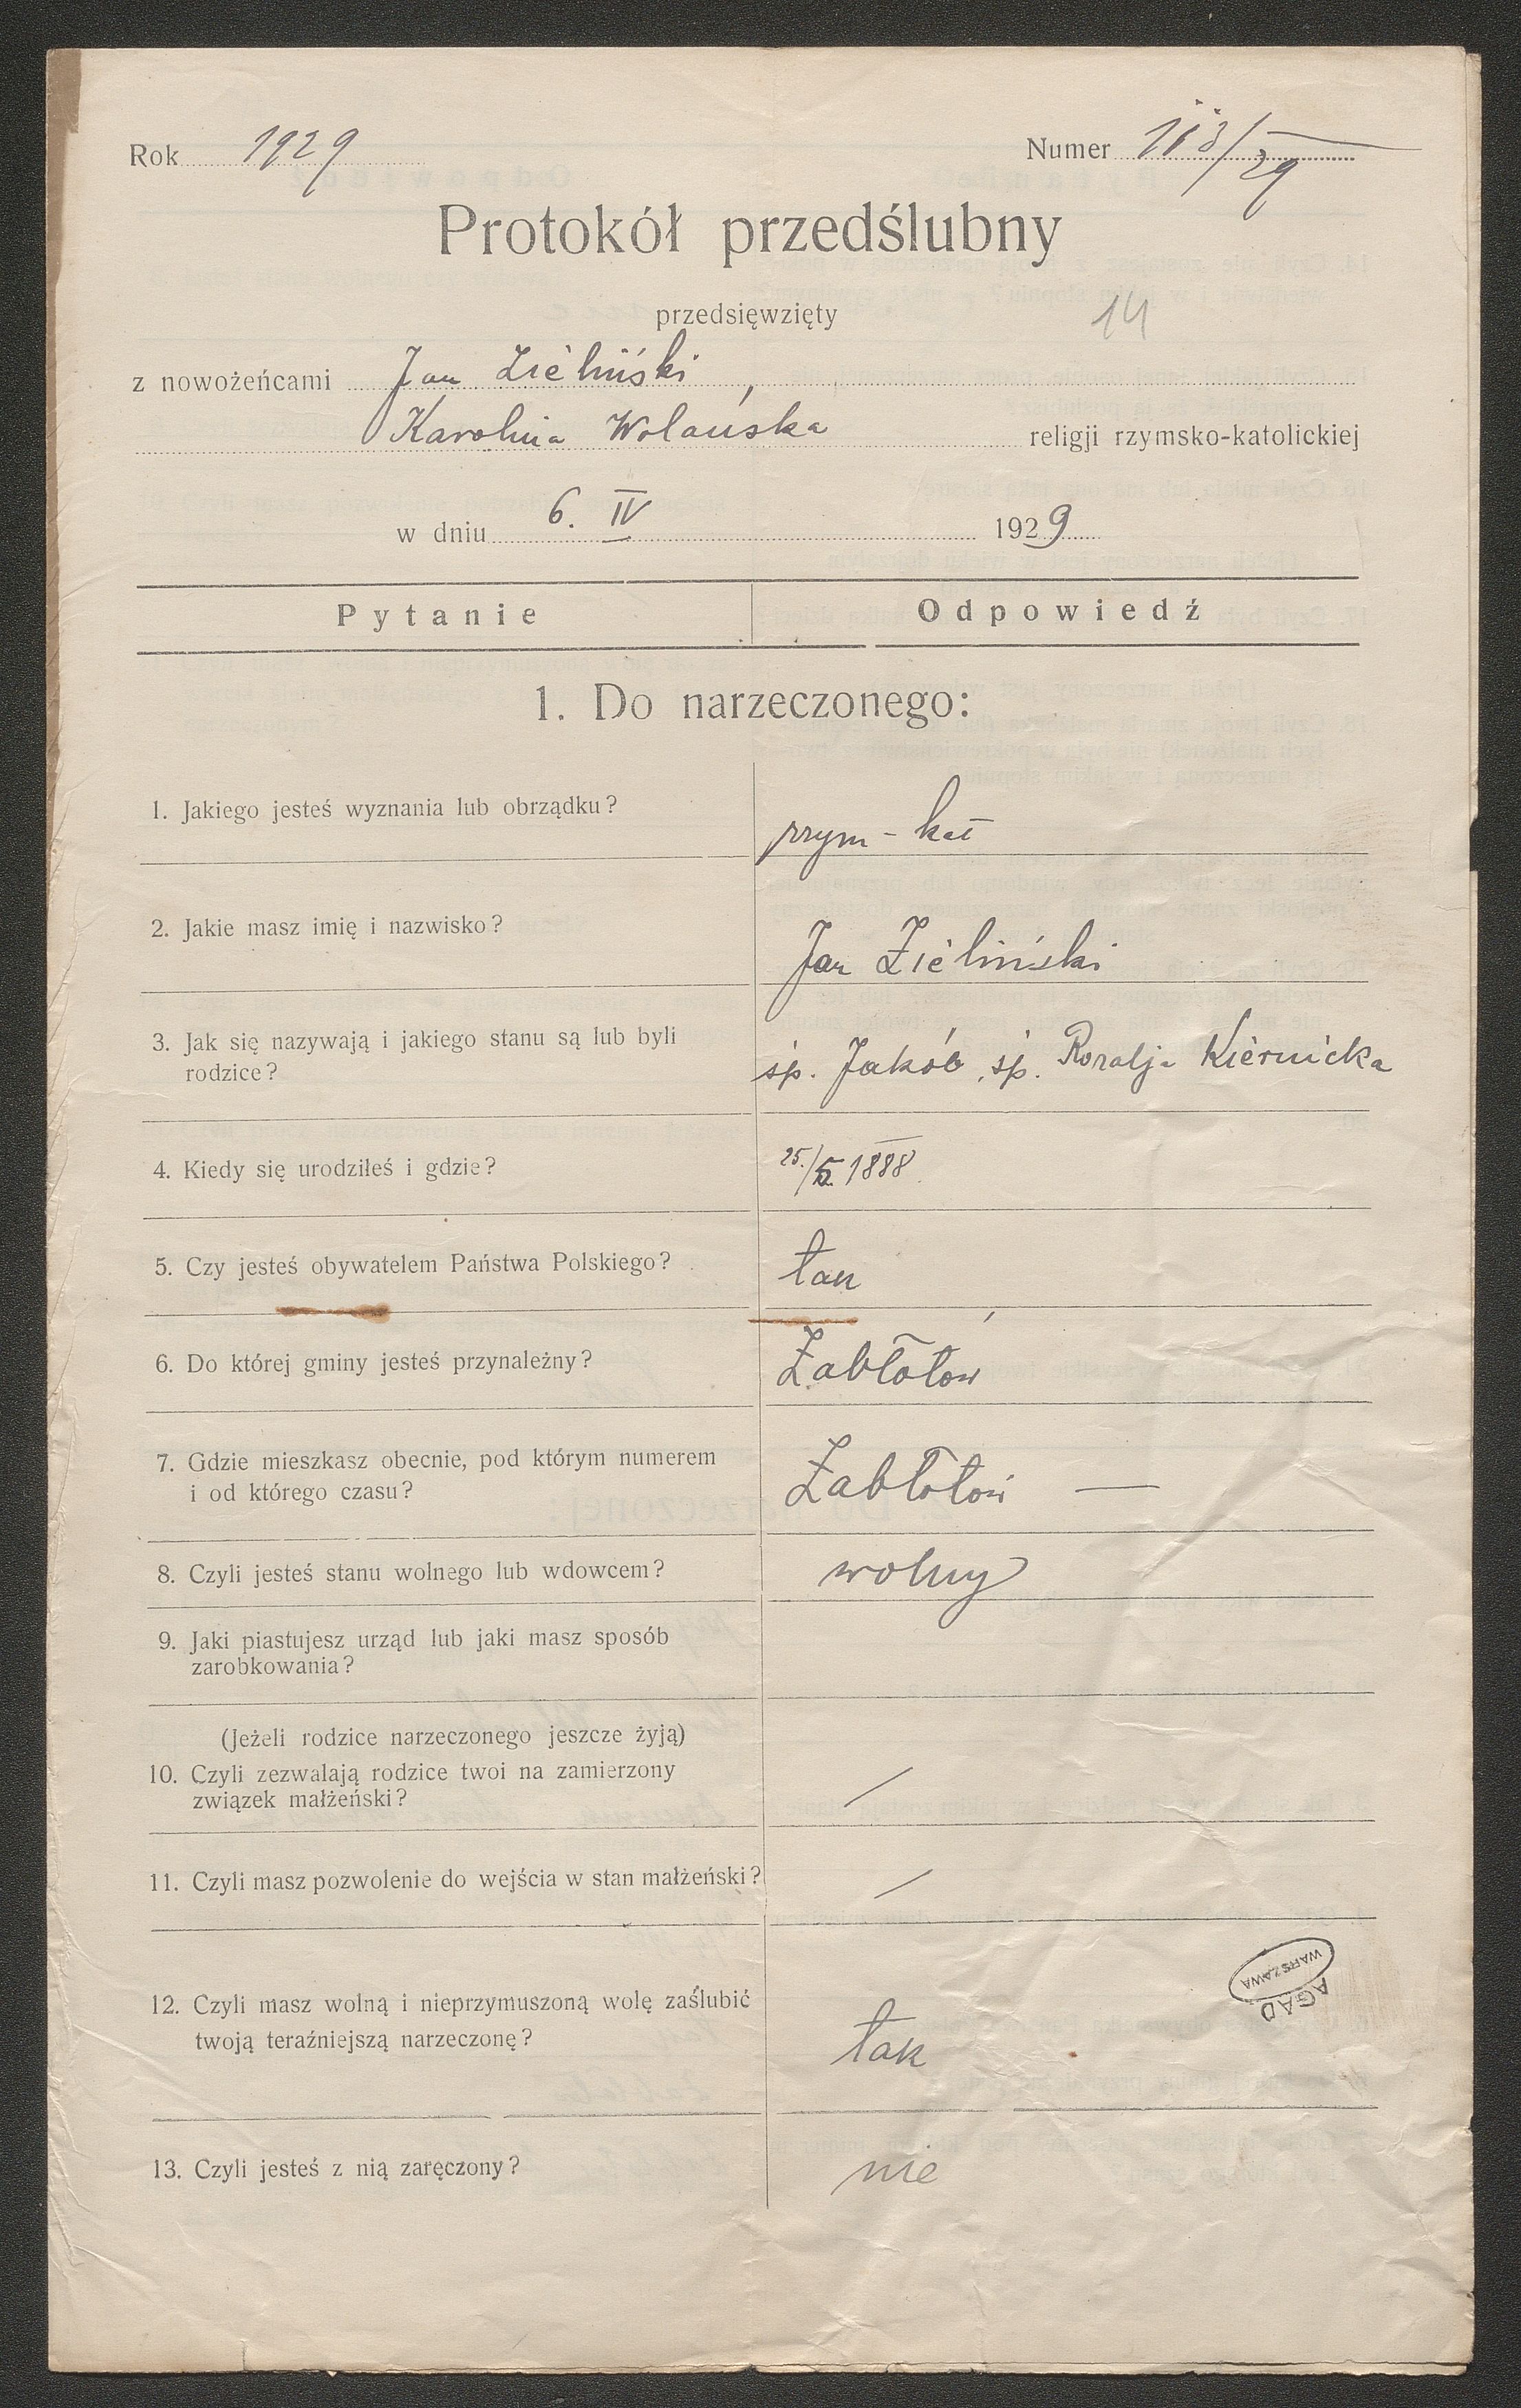 Rok 1929 Numer 113/29
Protokół przedślubny
przedsięwzięty
14
z nowożeńcami Jan Zieliński,
Karolina Wolańska religji rzymsko-katolickiej
w dniu 6. IV 1929
Pytanie Odpowiedź
1. Do narzeczonego:
1. Jakiego jesteś wyznania lub obrządku?
rzym-kat
2. Jakie masz imię i nazwisko?
Jan Zieliński
3. Jak się nazywają i jakiego stanu są lub byli
rodzice?
śp. Jakób, śp. Rozalja Kiernicka
4. Kiedy się urodziłeś i gdzie?
25./5. 1888
5. Czy jesteś obywatelem Państwa Polskiego?
tak
6. Do której gminy jesteś przynależny?
Zabłotow
7. Gdzie mieszkasz obecnie, pod którym numerem
i od którego czasu?
Zabłotow —
8. Czyli jesteś stanu wolnego lub wdowcem?
wolny
9. Jaki piastujesz urząd lub jaki masz sposób
zarobkowania?
(Jeżeli rodzice narzeczonego jeszcze żyją)
10. Czyli zezwalają rodzice twoi na zamierzony
związek małżeński?
/
11. Czyli masz pozwolenie do wejścia w stan małżeński?
/
AGAD
WARSZAWA
12. Czyli masz wolną i nieprzymuszoną wolę zaślubić
twoją teraźniejszą narzeczonę?
tak
13. Czyli jesteś z nią zaręczony?
nie